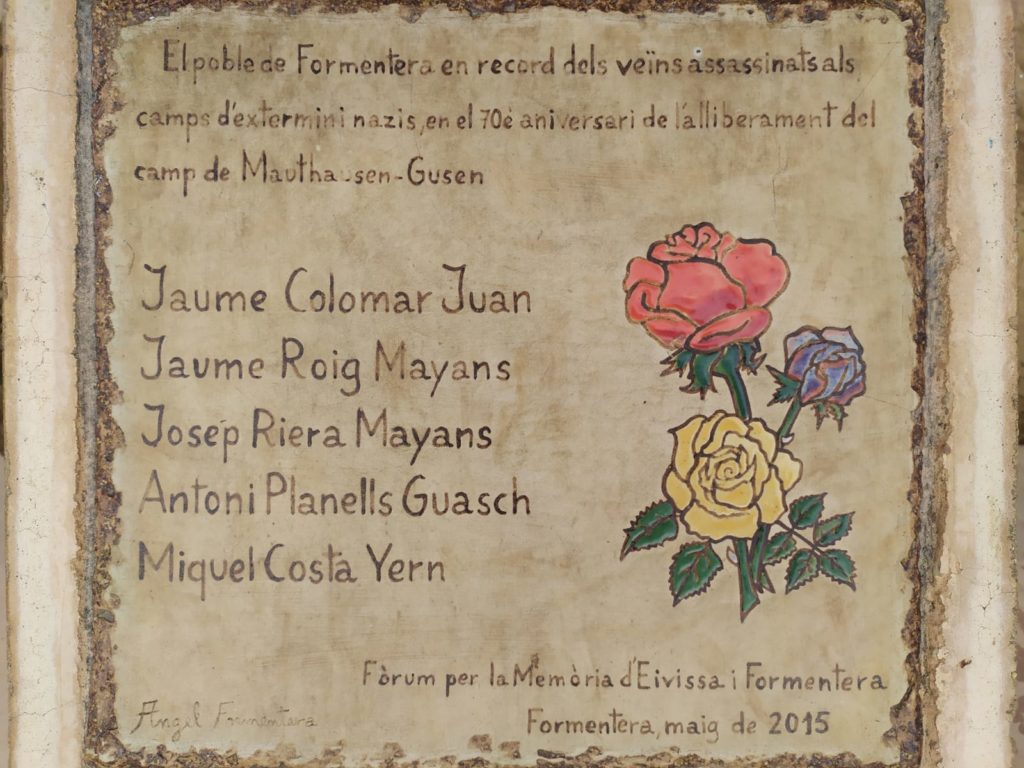 El poble de Formentera en record dels veïns assassinats als
camps d'extermini nazis, en el 70è aniversari de l'alliberament del
camp de Mauthausen-Gusen
Jaume Colomar Juan
Jaume Roig Mayans
Josep Riera Mayans
Antoni Planells Guasch
Miquel Costa Yern
Fòrum per la Memòria d'Eivissa i Formentera
Àngel Formentera
Formentera, maig de 2015